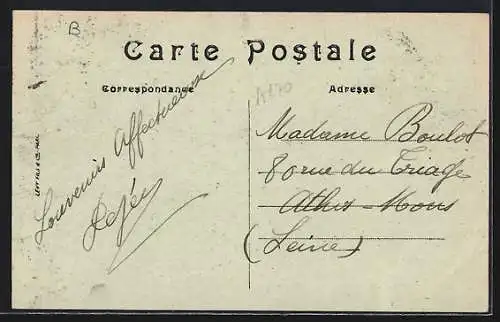 B
Carte Postale
Correspondance
Adresse
Souvenirs Affectueux
Madame Boulot
70 rue du Triage
Athis-Mons
(Seine)